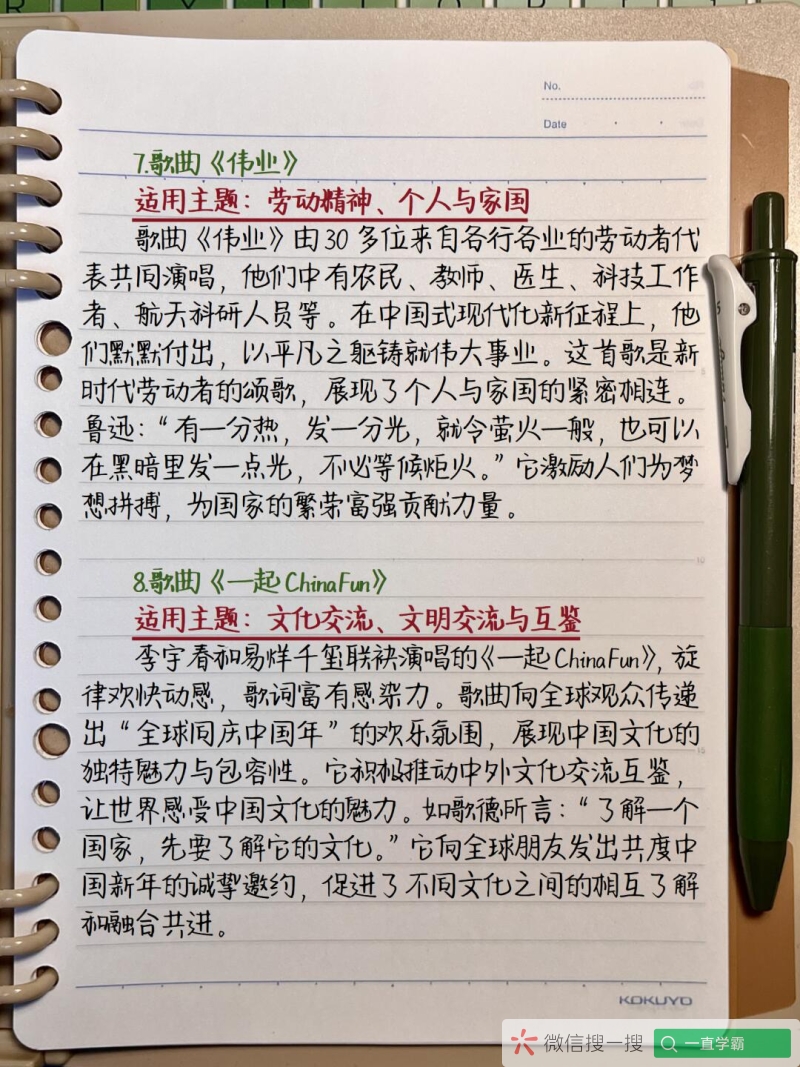 No.
Date
7.歌曲《伟业》
适用主题：劳动精神、个人与家国
歌曲《伟业》由30多位来自各行各业的劳动者代
表共同演唱，他们中有农民、教师、医生、科技工作
者、航天科研人员等。在中国式现代化新征程上，他
们默默付出，以平凡之躯铸就伟大事业。这首歌是新
时代劳动者的颂歌，展现了个人与家国的紧密相连。
鲁迅：“有一分热，发一分光，就令萤火一般，也可以
在黑暗里发一点光，不必等候炬火。”它激励人们为梦
想拼搏，为国家的繁荣富强贡献力量。
8.歌曲《一起ChinaFun》
适用主题：文化交流、文明交流与互鉴
李宇春和易烊千玺联袂演唱的《一起ChinaFun》，旋
律欢快动感，歌词富有感染力。歌曲向全球观众传递
出“全球同庆中国年”的欢乐氛围，展现中国文化的
独特魅力与包容性。它积极推动中外文化交流互鉴，
让世界感受中国文化的魅力。如歌德所言：“了解一个
国家，先要了解它的文化。”它向全球朋友发出共度中
国新年的诚挚邀约，促进了不同文化之间的相互了解
和融合共进。
KOKUYO
微信搜一搜
一直学霸